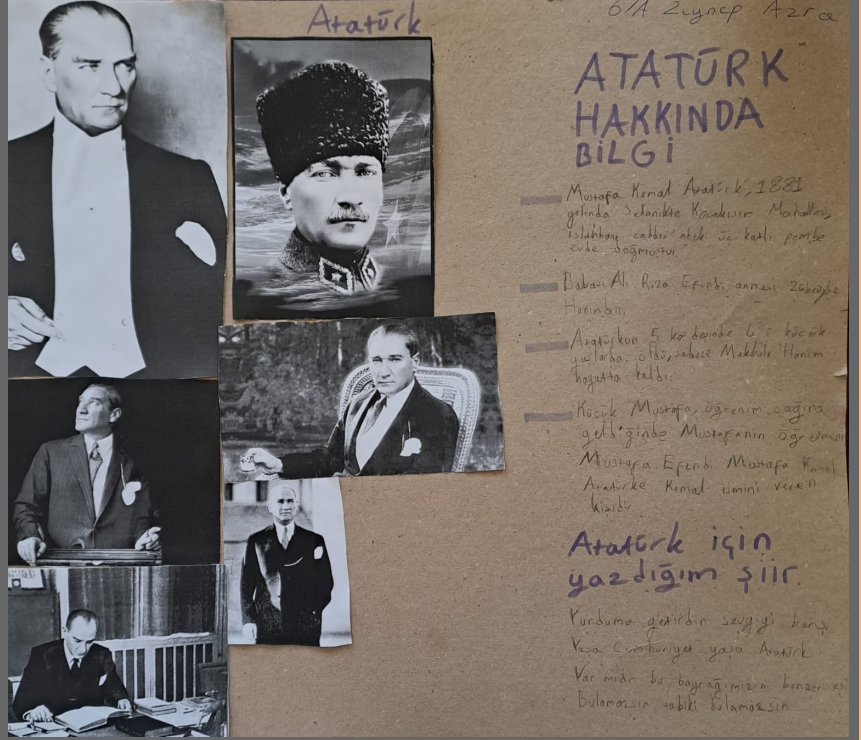 Atatürk
6/A Zeynep Azra
ATATÜRK
HAKKINDA
BİLGİ
Mustafa Kemal Atatürk, 1881
yılında Selanikte Kocakasım Mahallesi,
Islahhane caddesi'ndeki üç katlı pembe
evde doğmuştur
Babası Ali Rıza Efendi, annesi Zübeyde
Hanımdır.
Atatürkün 5 kardeşinde küçük
yaşlarda öldü, sadece Makbule Hanım
hayatta kaldı.
Küçük Mustafa, öğrenim çağına
geldiğinde Mustafanın öğretmeni
Mustafa Efendi Mustafa Kemal
Atatürke Kemal ismini veren
kişidir
Atatürk için
yazdığım şiir.
Yurduma getirdin sevgiyi barışı
Yaşa Cumhuriyet yaşa Atatürk
Var mıdır bu bayrağımızın benzeri
Bulamazsın tabiki bulamazsın